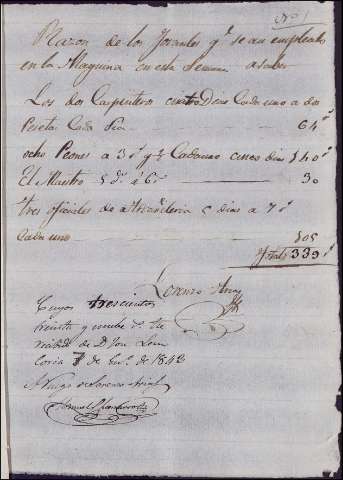 Nº 1
Razon de los Jornales qe. se an empleado
en la Maquina en esta Semana a saber
Los dos Carpinteros cuatro Dias Cada uno a dos
Pesetas Cada Dia 64 rs
ocho Peones a 3 rs y ½ Cada uno cinco dias 140 rs
El Maestro 5 ds. á 6 rs 30
tres oficiales de albañileria 5 dias a 7 rs
Cada uno 105
Total 339 rs
Lorenzo
Cuyos trescientos
treinta y nueve rs. he
recibido de D. Jose
Coria 7 de de 184
A Ruego de Lorenzo
Manuel